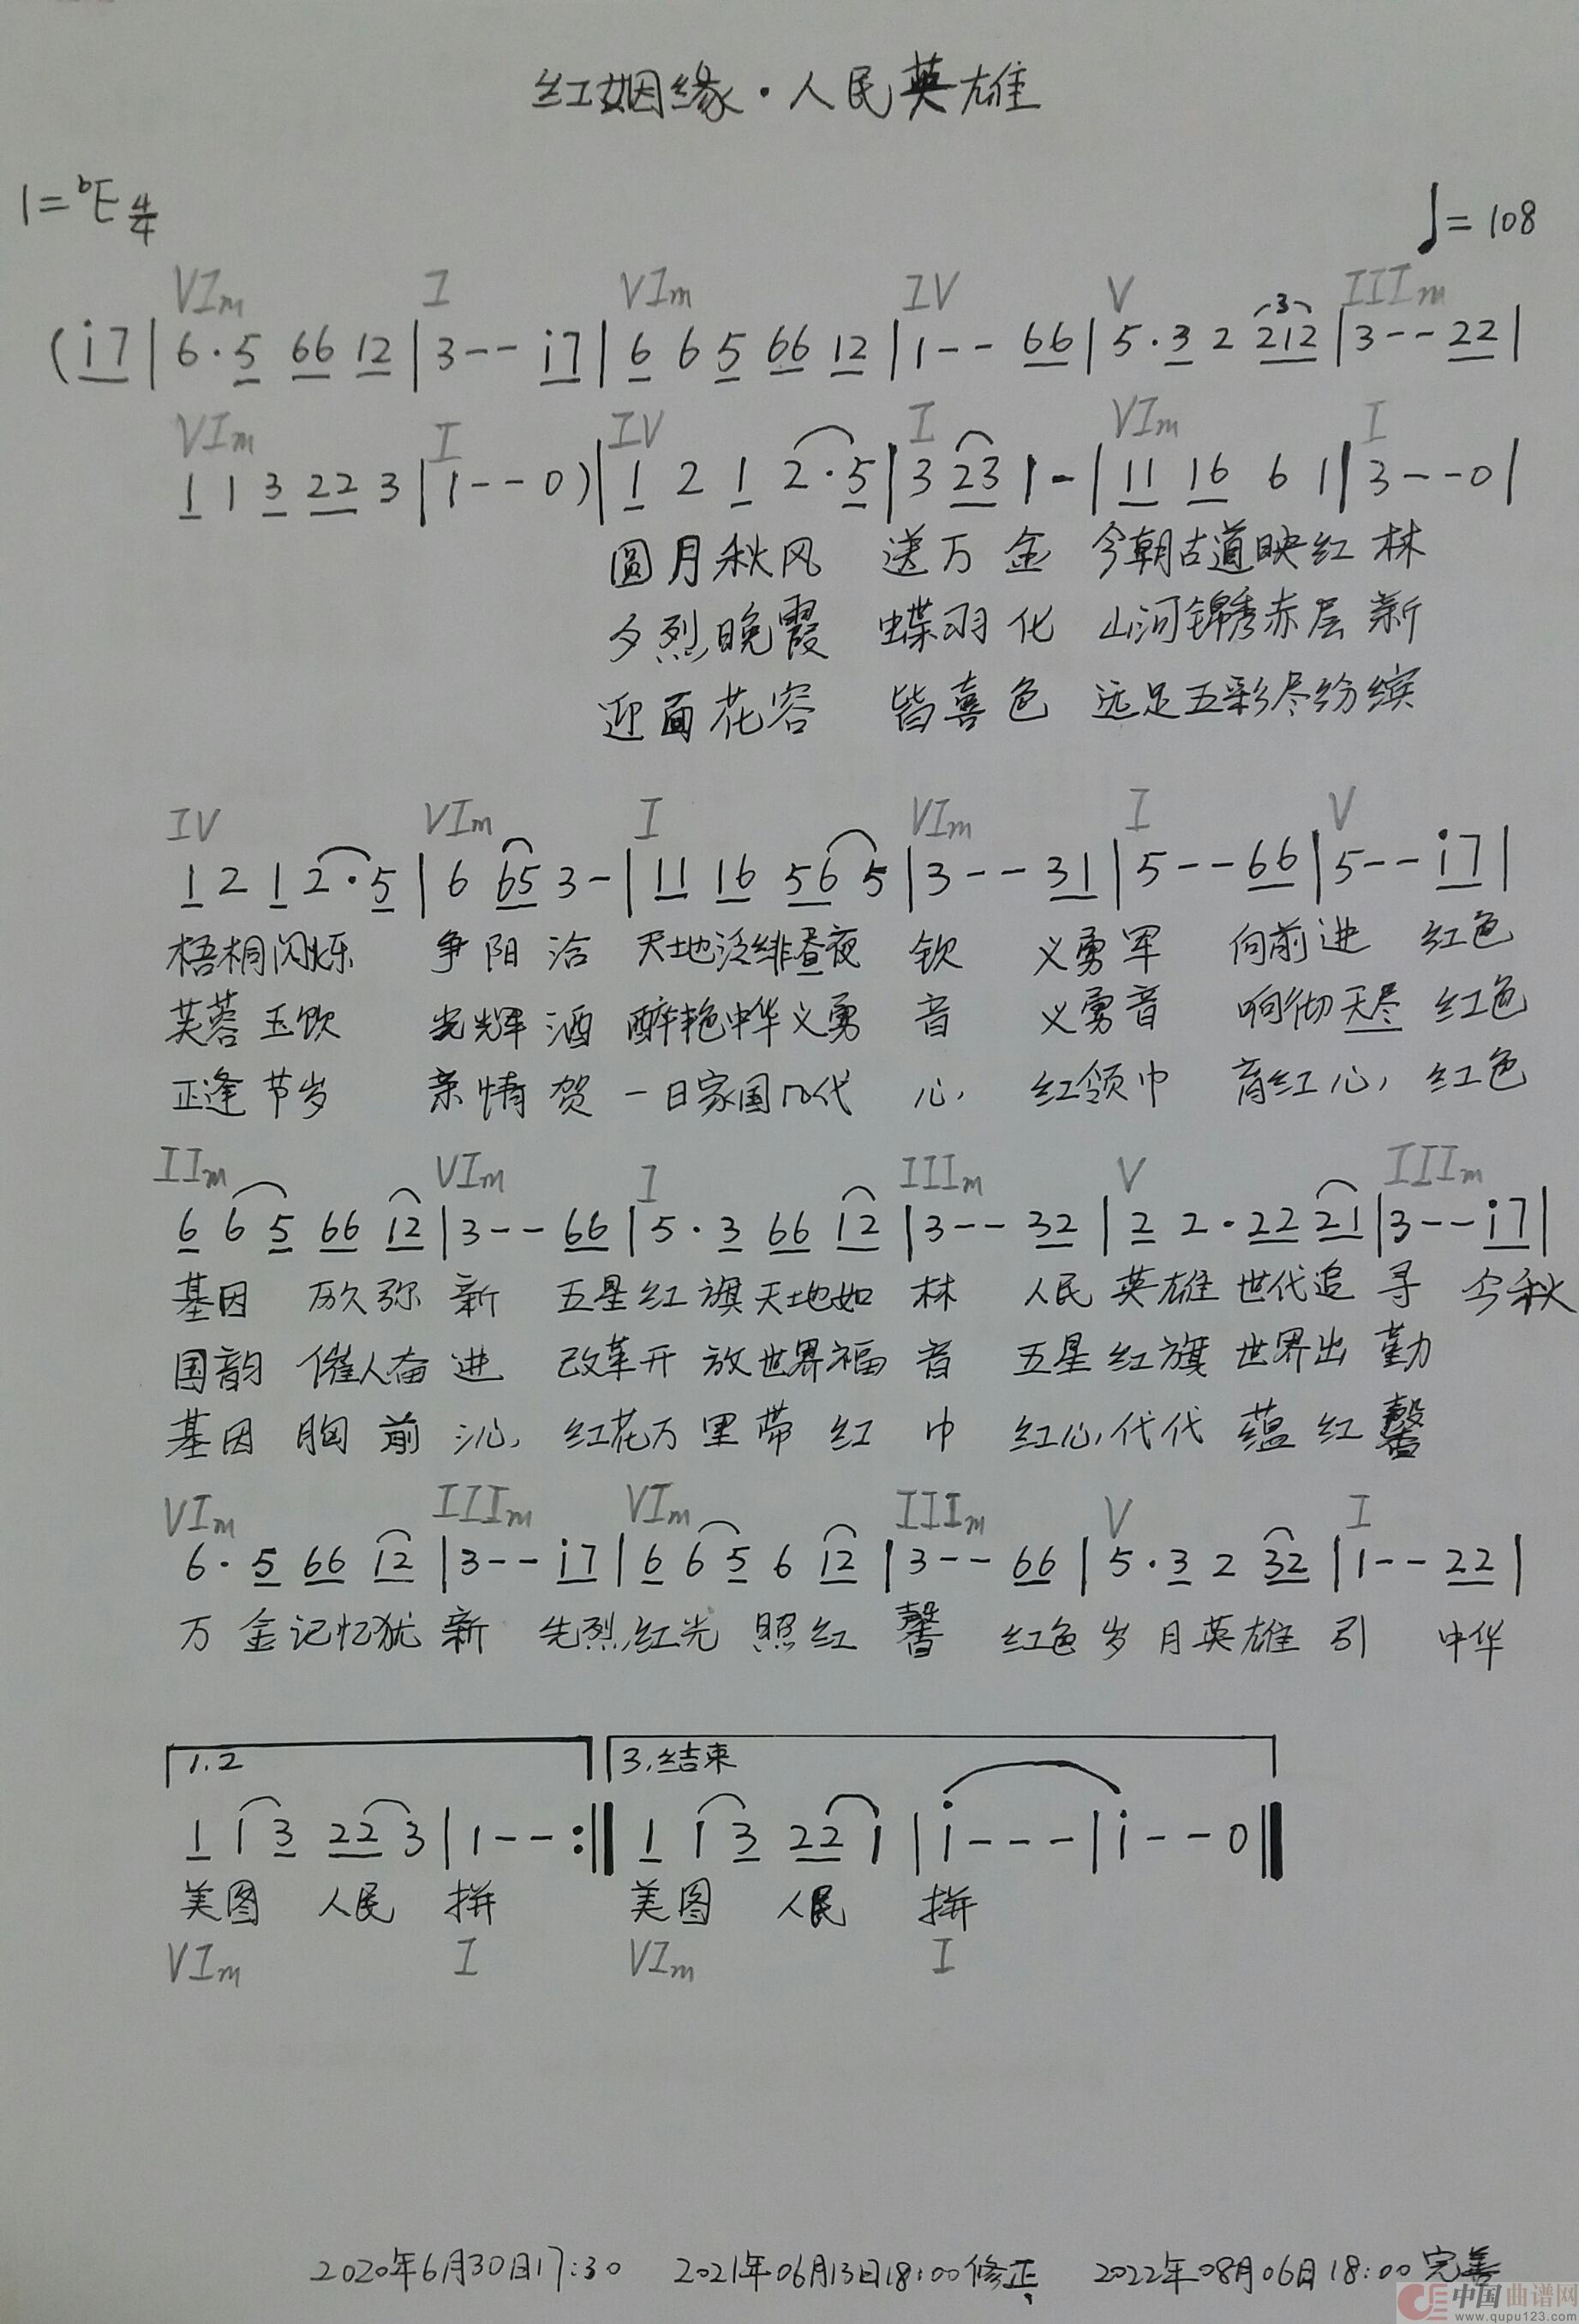 红姻缘·人民英雄
1=bE 4/4
♩=108
VIm I VIm IV V IIIm
(i7|6·5 66 12|3--i7|6 6 5 66 12|1--66|5·3 2 212|3--22|
3
VIm I IV I VIm I
1 1 3 22 3|1--0)|1 2 1 2·5|3 23 1-|11 16 6 1|3--0|
圆月秋风 送万金 今朝古道映红林
夕烈晚霞 蝶羽化 山河锦秀赤层新
迎面花容 皆喜色 远足五彩尽纷缤
IV VIm I VIm I V
1 2 1 2·5|6 65 3-|11 16 56 5|3--31|5--66|5--i7|
梧桐闪烁 争阳洽 天地泛绯昼夜钦 义勇军 向前进 红色
芙蓉玉饮 光辉酒 醉艳中华义勇音 义勇音 响彻天尽 红色
正逢节岁 亲情贺 一日家国几代心 红领巾 育红心 红色
IIm VIm I IIIm V IIIm
6 6 5 66 12|3--66|5·3 66 12|3--32|2 2·22 21|3--i7|
基因 历久弥新 五星红旗天地如林 人民英雄世代追寻 今秋
国韵 催人奋进 改革开放世界福音 五星红旗世界出勤
基因 胸前沁 红花万里带红巾 红心代代蕴红馨
VIm IIIm VIm IIIm V I
6·5 66 12|3--i7|6 6 5 6 12|3--66|5·3 2 32|1--22|
万金记忆犹新 先烈红光照红馨 红色岁月英雄引 中华
1.2 3.结束
1 1 3 22 3|1--:‖1 1 3 22 1|i---|i--0‖
美图 人民 拼 美图 人民 拼
VIm I VIm I
2020年6月30日17:30 2021年06月13日18:00修正、 2022年08月06日18:00完善
中国曲谱网
www.qupu123.com